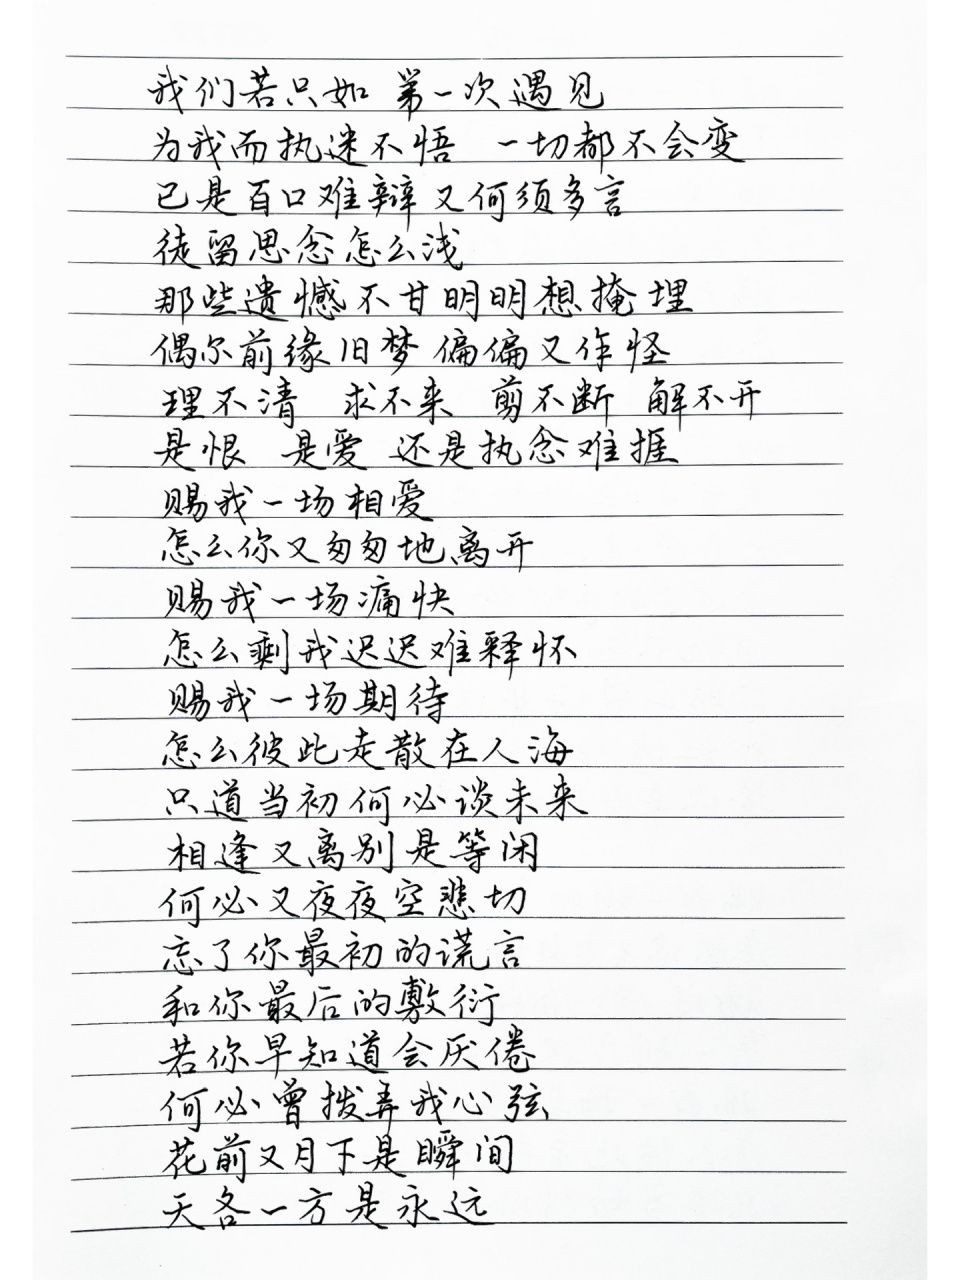 我们若只如 第一次遇见
为我而执迷不悟 一切都不会变
已是百口难辩又何须多言
徒留思念怎么浅
那些遗憾不甘明明想掩埋
偶尔前缘旧梦偏偏又作怪
理不清 求不来 剪不断 解不开
是恨 是爱 还是执念难捱
赐我一场相爱
怎么你又匆匆地离开
赐我一场痛快
怎么剩我迟迟难释怀
赐我一场期待
怎么彼此走散在人海
只道当初何必谈未来
相逢又离别是等闲
何必又夜夜空悲切
忘了你最初的谎言
和你最后的敷衍
若你早知道会厌倦
何必曾拨弄我心弦
花前又月下是瞬间
天各一方是永远